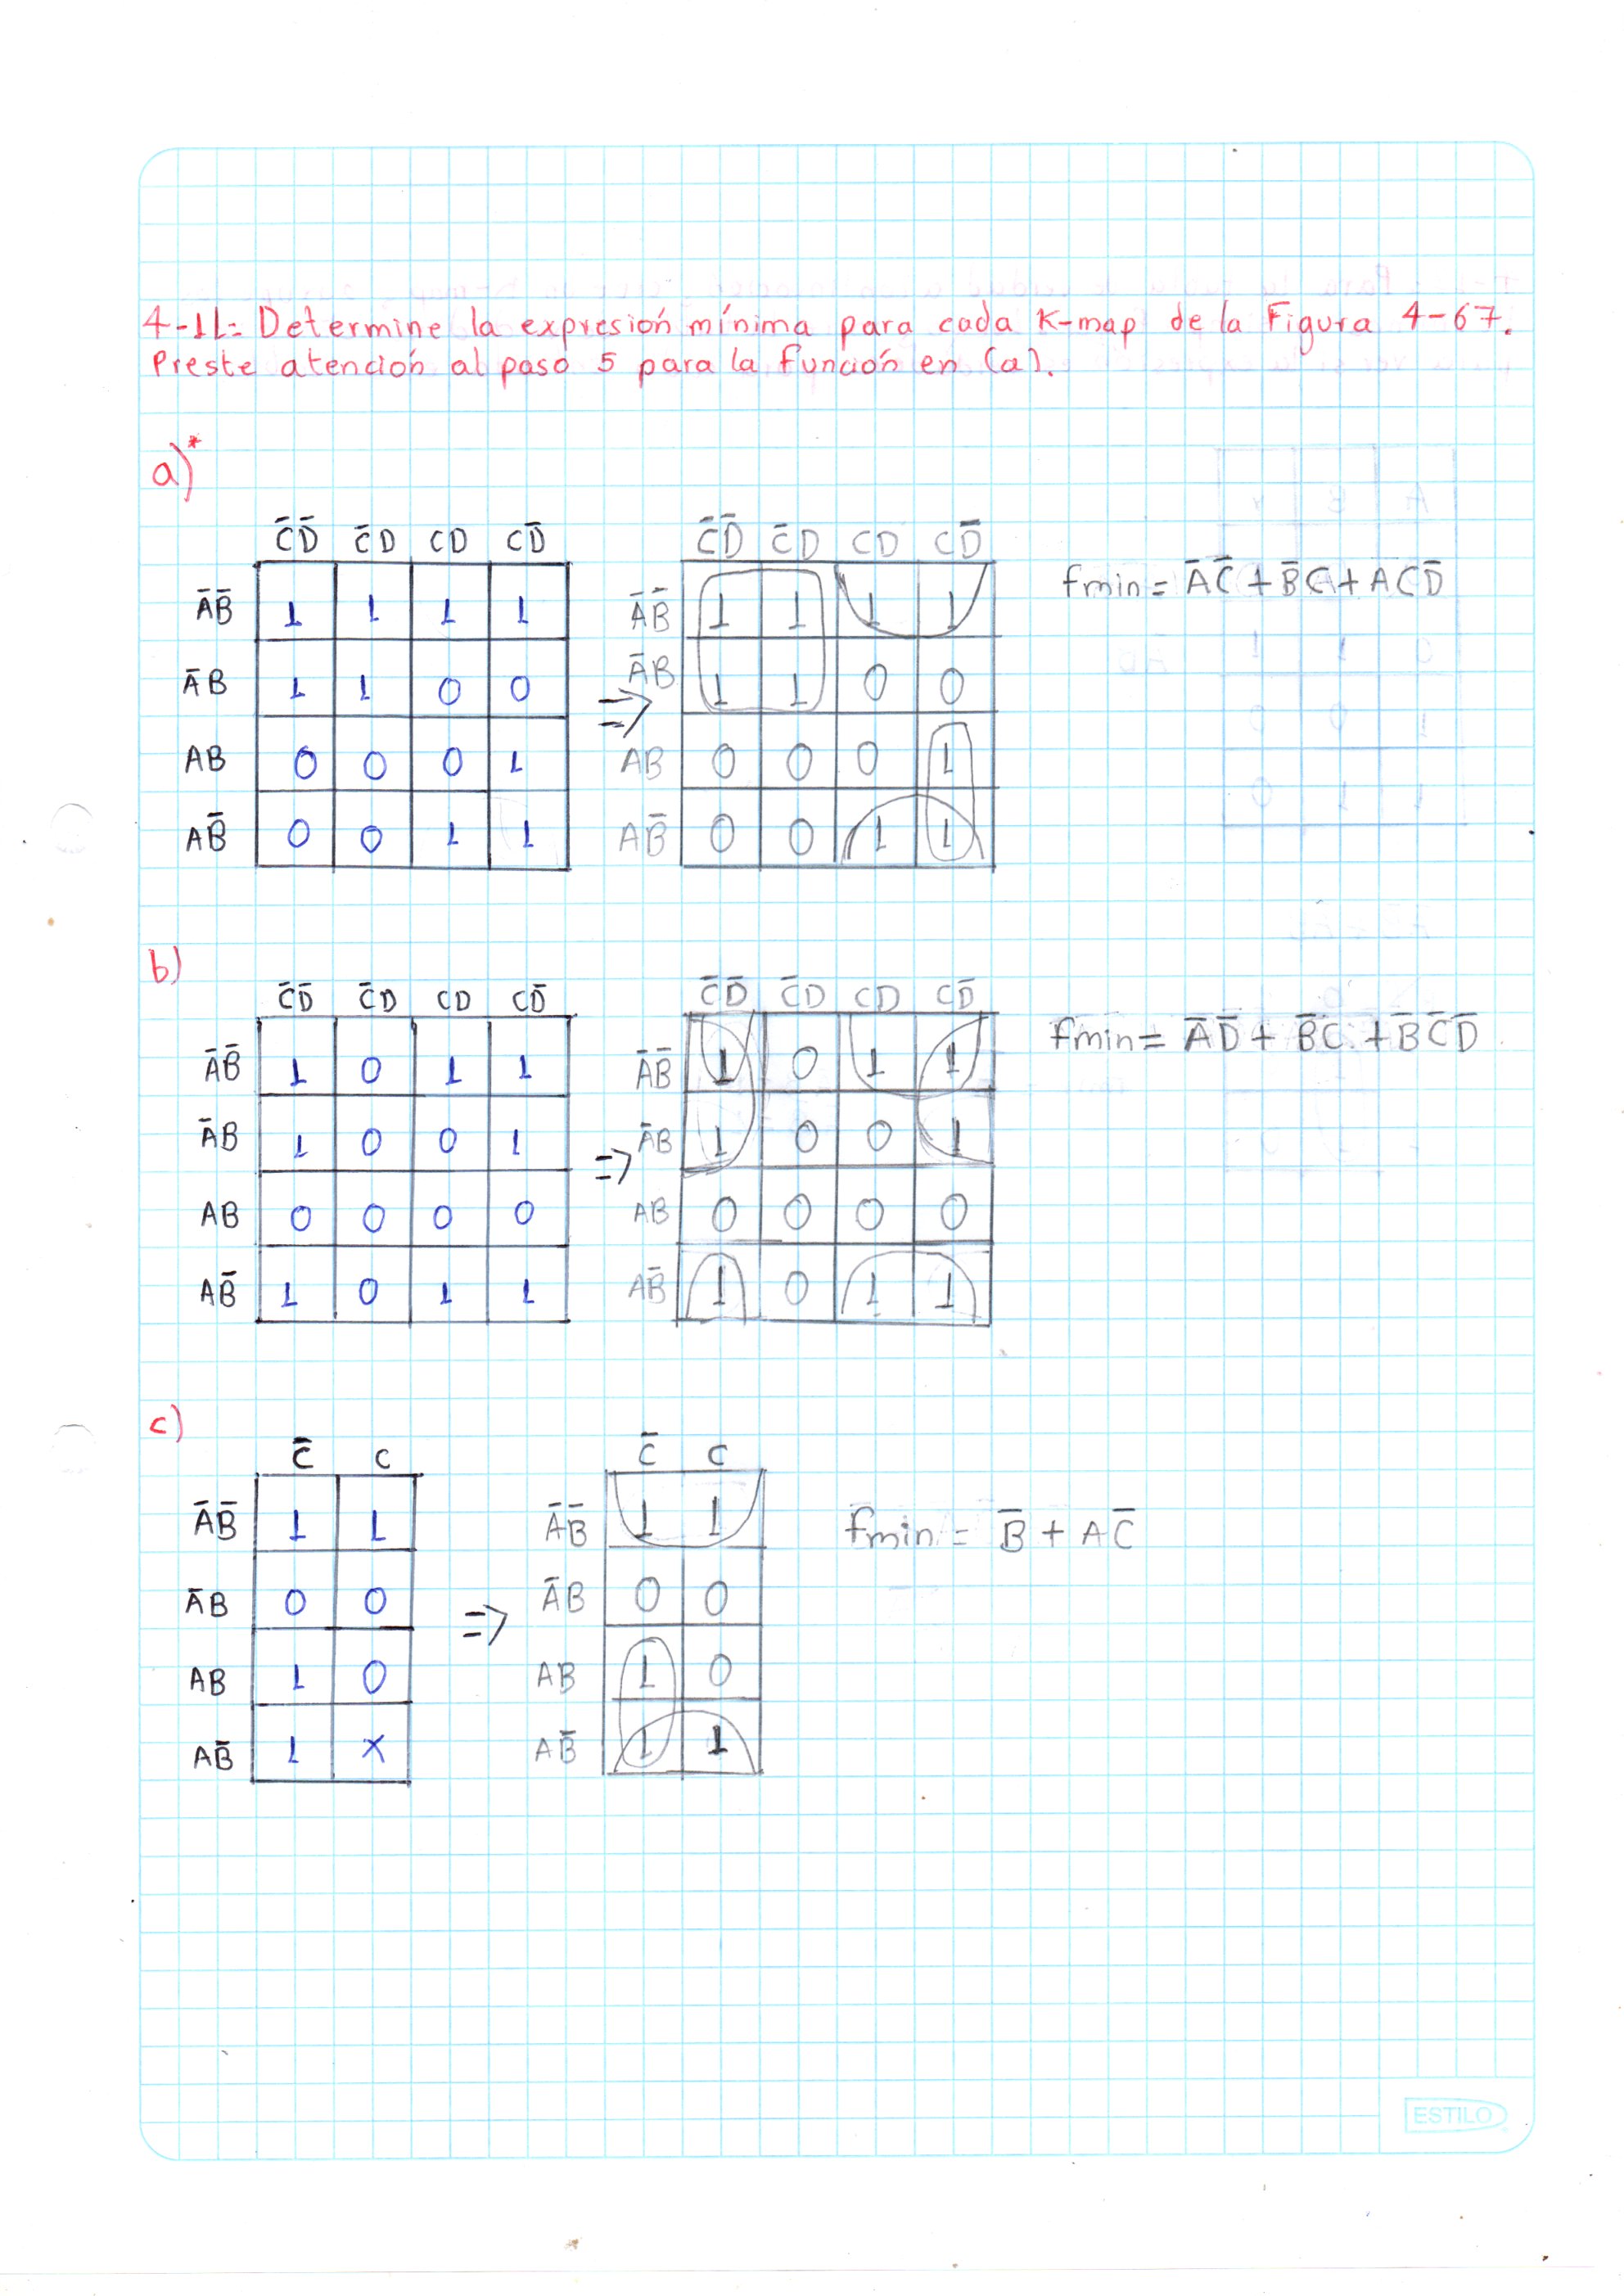 4-11= Determine la expresión mínima para cada K-map de la Figura 4-67.
Preste atención al paso 5 para la función en (a).
a)*
C̄D̄ C̄D CD CD̄
ĀB̄ 1 1 1 1
ĀB 1 1 0 0
AB 0 0 0 1
AB̄ 0 0 1 1
=>
C̄D̄ C̄D CD CD̄
ĀB̄ 1 1 1 1
ĀB 1 1 0 0
AB 0 0 0 1
AB̄ 0 0 1 1
fmin = ĀC̄ + B̄C + ACD̄
b)
C̄D̄ C̄D CD CD̄
ĀB̄ 1 0 1 1
ĀB 1 0 0 1
AB 0 0 0 0
AB̄ 1 0 1 1
=>
C̄D̄ C̄D CD CD̄
ĀB̄ 1 0 1 1
ĀB 1 0 0 1
AB 0 0 0 0
AB̄ 1 0 1 1
fmin = ĀD̄ + B̄C + B̄C̄D̄
c)
C̄ C
ĀB̄ 1 1
ĀB 0 0
AB 1 0
AB̄ 1 X
=>
C̄ C
ĀB̄ 1 1
ĀB 0 0
AB 1 0
AB̄ 1 1
fmin = B̄ + AC̄
ESTILO